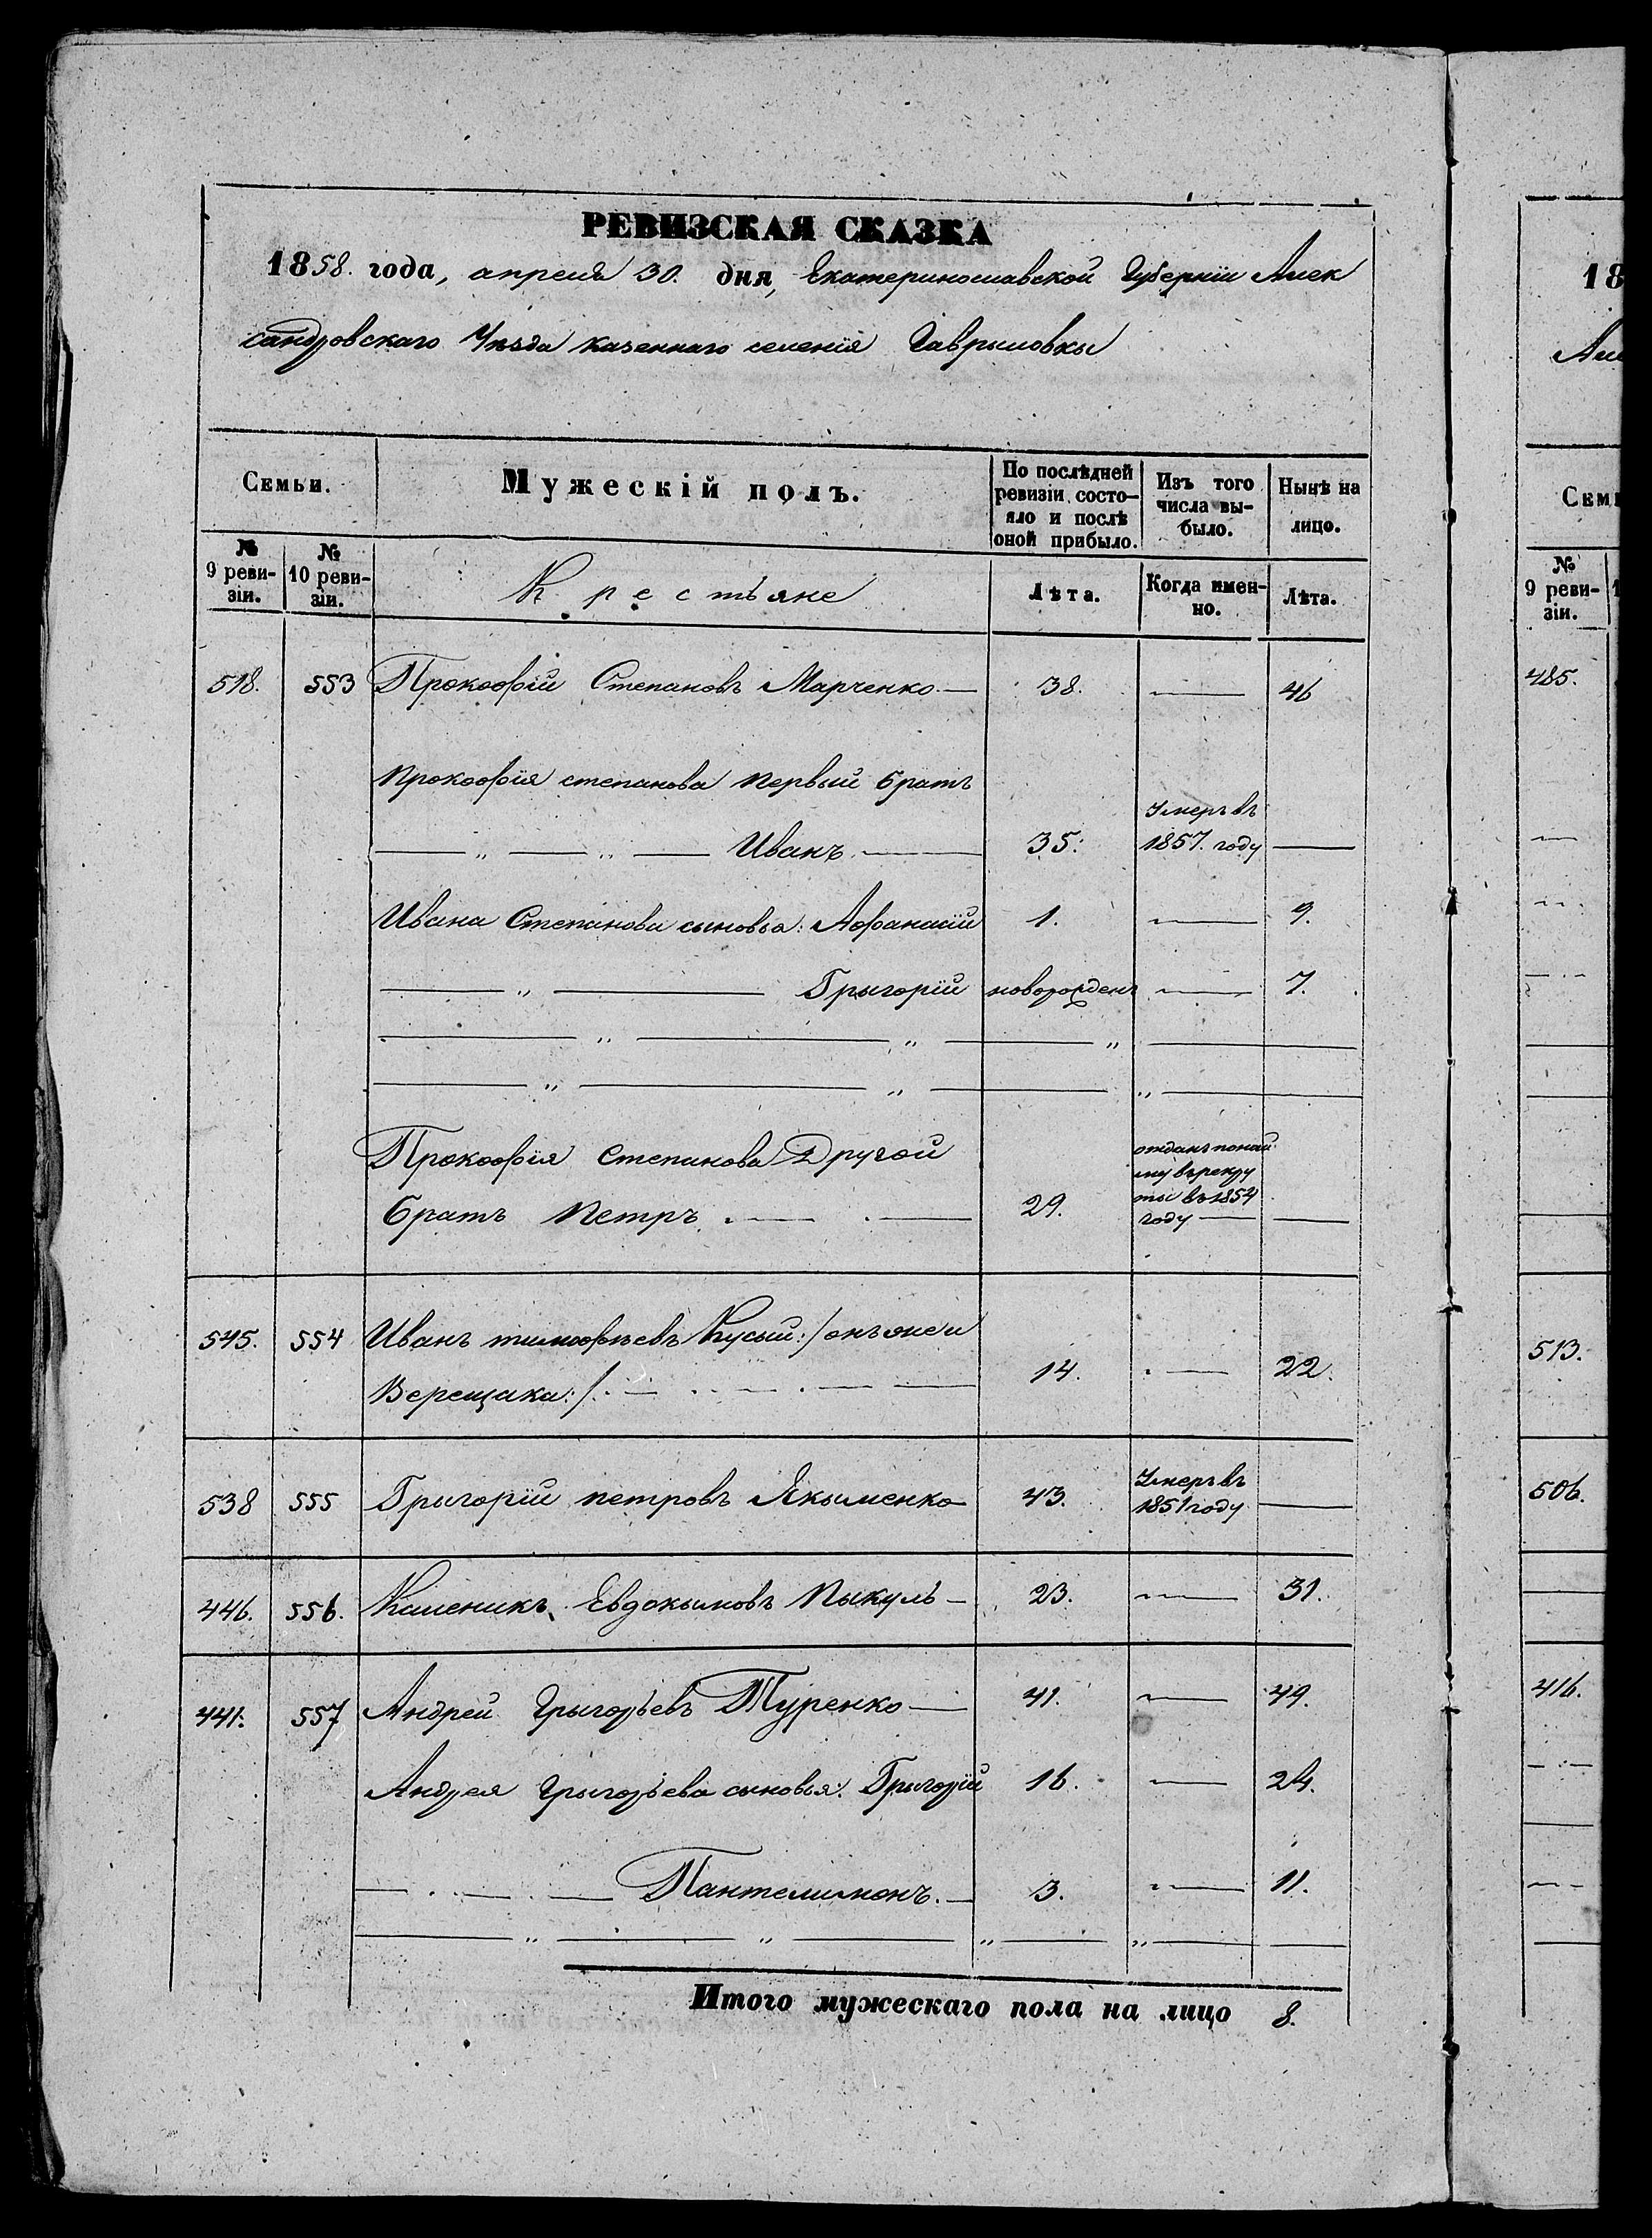 РЕВИЗСКАЯ СКАЗКА
1858. года, апреля 30. дня, Екатеринославской Губерніи Алек
сандровскаго Уѣзда казеннаго селенія Гаврыловкы
Семьи.
Мужескій полъ.
По послѣдней ревизіи состо-
яло и послѣ оной прибыло.
Изъ того числа вы-
было.
Нынѣ на лицо.
№ 9 реви-
зіи.
№ 10 реви-
зіи.
Крестьяне
Лѣта.
Когда имен-
но.
Лѣта.
518. 553 Прокофій Степановъ Марченко — 38. — 46
Прокофія степанова первый братъ
— „ — „ — Иванъ — 35. Умеръ въ 1857. году —
Ивана Степанова сыновья: Афанасій 1. — 9.
— „ — Грыгорій новорожденъ — 7.
— „ — „ — „ —
— „ — „ — „ —
Прокофія Степанова Другой
братъ Петръ. — . — 29. отданъ понай
му въ рекру
ты въ 1854
году — —
545. 554 Иванъ тимофѣевъ Кусый :/ онъ же и
Верещака :/. — 14. — 22.
538 555 Грыгорій петровъ Якыменко 43. Умеръ въ
1851 году —
446. 556. Каленикъ Евдокымовъ Пыкуль — 23. — 31.
441. 557 Андрей Грыгорьевъ Туренко — 41. — 49.
Андрея Грыгорьева сыновья: Грыгорій 16. — 24.
— . — . — Пантелимонъ. — 3. — 11.
— „ — „ — „ — „ — —
Итого мужескаго пола на лицо 8.
18
Але
Семь
№
9 реви-
зіи.
1
485.
513.
506.
416.